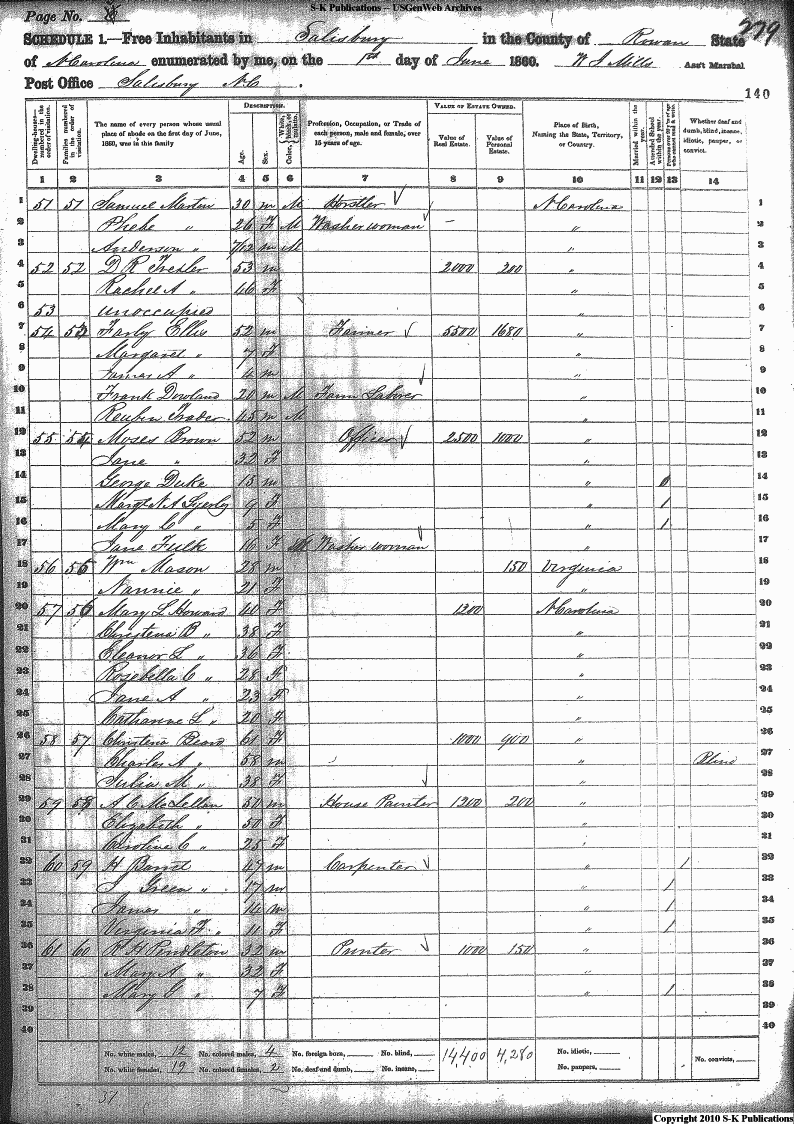 S-K Publications – USGenWeb Archives
Page No.
279
SCHEDULE 1.—Free Inhabitants in Salisbury in the County of Rowan State
of N Carolina enumerated by me, on the 1st day of June 1860. W J Mills Ass't Marshal
Post Office Salisbury N C.
140
Dwelling-houses—numbered in the order of visitation.
Families numbered in the order of visitation.
The name of every person whose usual place of abode on the first day of June, 1860, was in this family
DESCRIPTION.
Age.
Sex.
Color, White, black, or mulatto.
Profession, Occupation, or Trade of each person, male and female, over 15 years of age.
VALUE OF ESTATE OWNED.
Value of Real Estate.
Value of Personal Estate.
Place of Birth, Naming the State, Territory, or Country.
Married within the year.
Attended School within the year.
Persons over 20 y'rs of age who cannot read & write.
Whether deaf and dumb, blind, insane, idiotic, pauper, or convict.
1 2 3 4 5 6 7 8 9 10 11 12 13 14
1 51 51 Samuel Marten 30 m M Hostler N Carolina 1
2 Phebe " 26 F M Washer woman – " 2
3 Anderson " 7/12 m M " 3
4 52 52 D R Trexler 53 m 2000 200 " 4
5 Rachel A " 46 F " 5
6 53 unoccupied 6
7 54 53 Farly Ellis 52 m Farmer 5500 1680 " 7
8 Margaret " 7 F " 8
9 James A " 4 m " 9
10 Frank Dowland 20 m M Farm Laborer " 10
11 Reuben Trader 45 m M " 11
12 55 54 Moses Brown 52 m Officer 2500 1000 " 12
13 Jane " 32 F " 13
14 George Duke 15 m " 14
15 Margt N A Lyerly 9 F " 1 15
16 Mary C " 5 F " 1 16
17 Jane Fulk 16 F M Washer woman " 17
18 56 55 Wm Mason 28 m 150 Virginia 18
19 Nannie " 21 F " 19
20 57 56 Mary L Howard 40 F 1300 N Carolina 20
21 Christena B " 38 F " 21
22 Eleanor L " 36 F " 22
23 Rosebella C " 28 F " 23
24 Jane A " 23 F " 24
25 Catharine L " 20 F " 25
26 58 57 Christena Beard 61 F 1000 900 " 26
27 Charles A " 58 m " Blind 27
28 Julia M " 38 F " 28
29 59 58 A C McLellan 50 m House Painter 1200 200 " 29
30 Elizabeth " 50 F " 30
31 Caroline C " 25 F " 31
32 60 59 H Barrit 47 m Carpenter " 1 32
33 J Green " 17 m 1 33
34 James " 14 m 1 34
35 Virginia F " 11 F 1 35
36 61 60 R H Pendleton 32 m Printer 1000 150 " 36
37 Mary A " 32 F " 37
38 Mary C " 7 F " 1 38
39 39
40 40
No. white males, 12 No. colored males, 4 No. foreign born, No. blind, 14,400 4,280 No. idiotic, No. convicts,
No. white females, 19 No. colored females, 2 No. deaf and dumb, No. insane, No. paupers,
37
Copyright 2010 S-K Publications